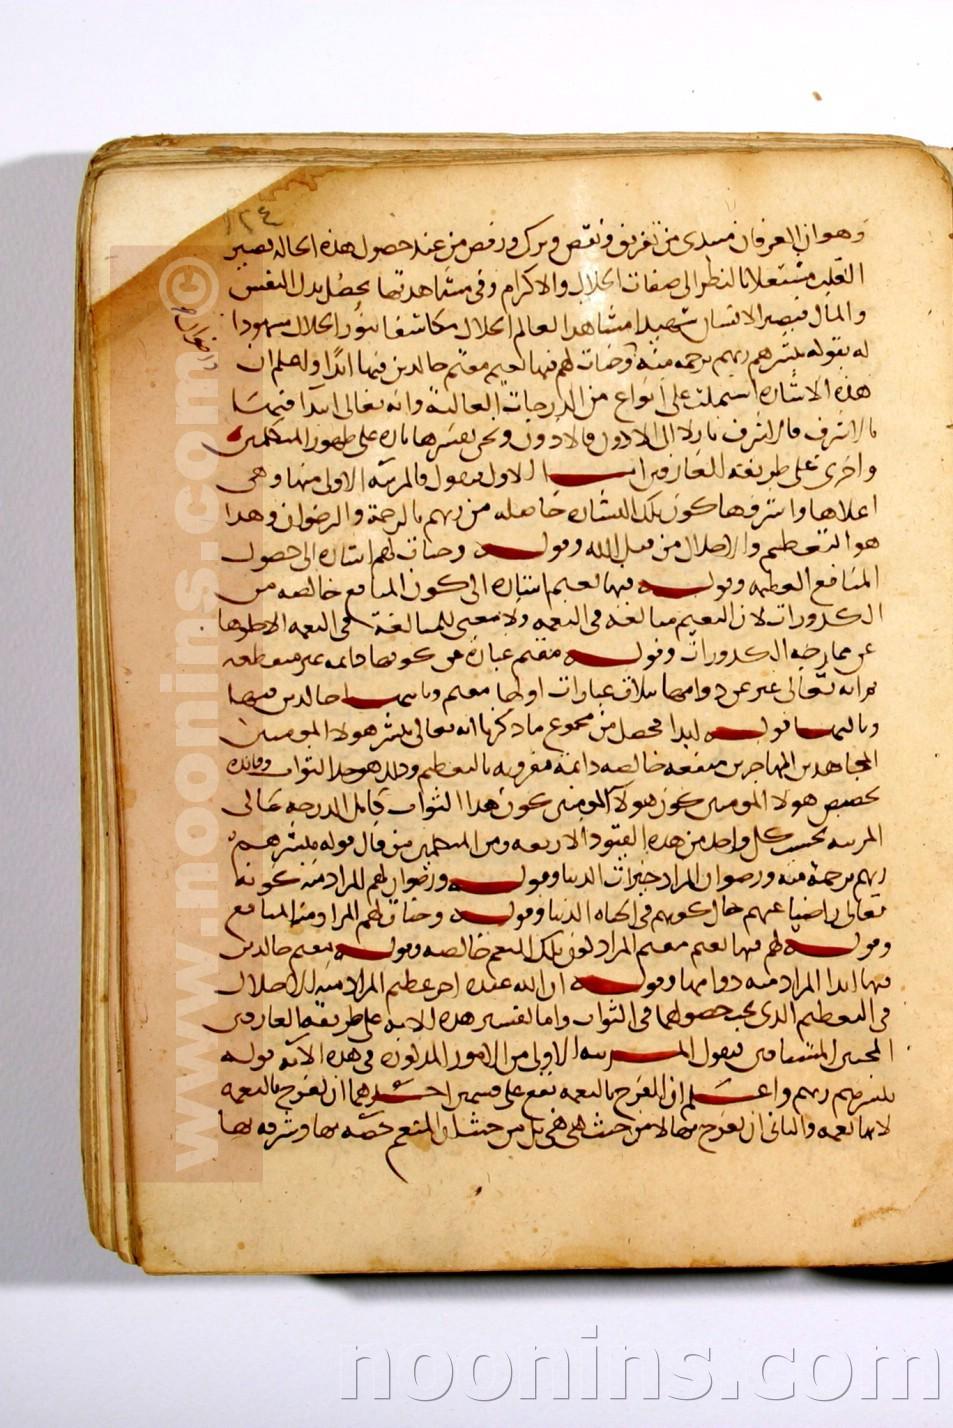 ١٢٤
وهو ان العرفان مبتدى من تفريق ونقص وترك ورفض من عند حصول هذه الحاله يصير
القلب مشتغلا بالنظر الى صفات الجلال والاكرام وفى مشاهدتها يحصل بذل النفس
والمال فيصير الانسان شهيدا مشاهدا لعالم الجلال مكاشفا بنور الجلال مشهودا
له بقوله يبشرهم ربهم برحمه منه وجنات لهم فيها نعيم مقيم خالدين فيها ابدا واعلم ان
ورضوان
هذه الاشاره اشتملت على انواع من الدرجات العالية وانه تعالى ابتدا فيها
بالاشرف فالاشرف نازلا الى الادون فالادون ونحن نفسرها تاره على طهور المتكلمين
واخرى على طريقة العارفين اما الاول فنقول فالمرتبه الاولى منها وهى
اعلاها واشرفها كون تلك البشاره حاصله من ربهم بالرحمة والرضوان وهذا
هو التعظيم والاجلال من قبل الله وقوله وجنات لهم اشاره الى حصول
المنافع العظيمه وقوله فيها نعيم اشاره الى كون المنافع خالصه من
الكدورات لان النعيم مبالغة فى النعمه ولا معنى للمبالغة فى النعمه الا خلوها
عن ممازجه الكدورات وقوله مقيم عباره عن كونها دايمه غير منقطعه
ثم انه تعالى عبر عن دوامها بثلاث عبارات اولها مقيم وثانيها خالدين فيها
وثالثها قوله ابدا فحصل من مجموع ما ذكرنا انه تعالى يبشر هولا المومنين
المجاهدين المهاجرين بمنفعه خالصه دايمه مقرونه بالتعظيم وذلك هو حد الثواب وفائده
تخصيص هولا المومنين كون هولا المومنين كون هذا الثواب كامل الدرجه عالى
المرتبه بحسب كل واحد من هذه القيود الاربعه ومن المتكلمين من قال قوله يبشرهم
ربهم برحمة منه ورضوان المراد خيرات الدنيا وقوله ورضوان لهم المراد منه كونه
تعالى راضيا عنهم حال كونهم فى الحياه الدنيا وقوله وجنات لهم المراد منه المنافع
وقوله لهم فيها نعيم مقيم المراد كون تلك النعم خالصه وقوله مقيم خالدين
فيها ابدا المراد منه دوامها وقوله ان الله عنده اجر عظيم المراد منه الاجلال
فى التعظيم الذى يجب حصولها فى الثواب واما تفسير هذه الايه على طريقه العارفين
المحبين المشتاقين فنقول المرتبه الاولى من الامور المذكوره فى هذه الآية قوله
يبشرهم ربهم واعلم ان الفرح بالنعمه يقع على قسمين احدهما ان يفرح بالنعمه
لانها نعمه والثانى ان يفرح بها لا من حيث هى هى بل من حيث ان المنعم خصه بها وشرفه بها
www.noonins.com©
noonins.com